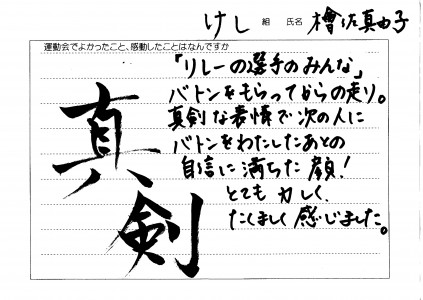 けし 組 氏名 檜佐真由子
運動会でよかったこと、感動したことはなんですか
「リレーの選手のみんな」
バトンをもらってからの走り。
真剣な表情で次の人に
バトンをわたしたあとの
自信に満ちた顔!
とても力しく、
たくましく感じました。
真剣